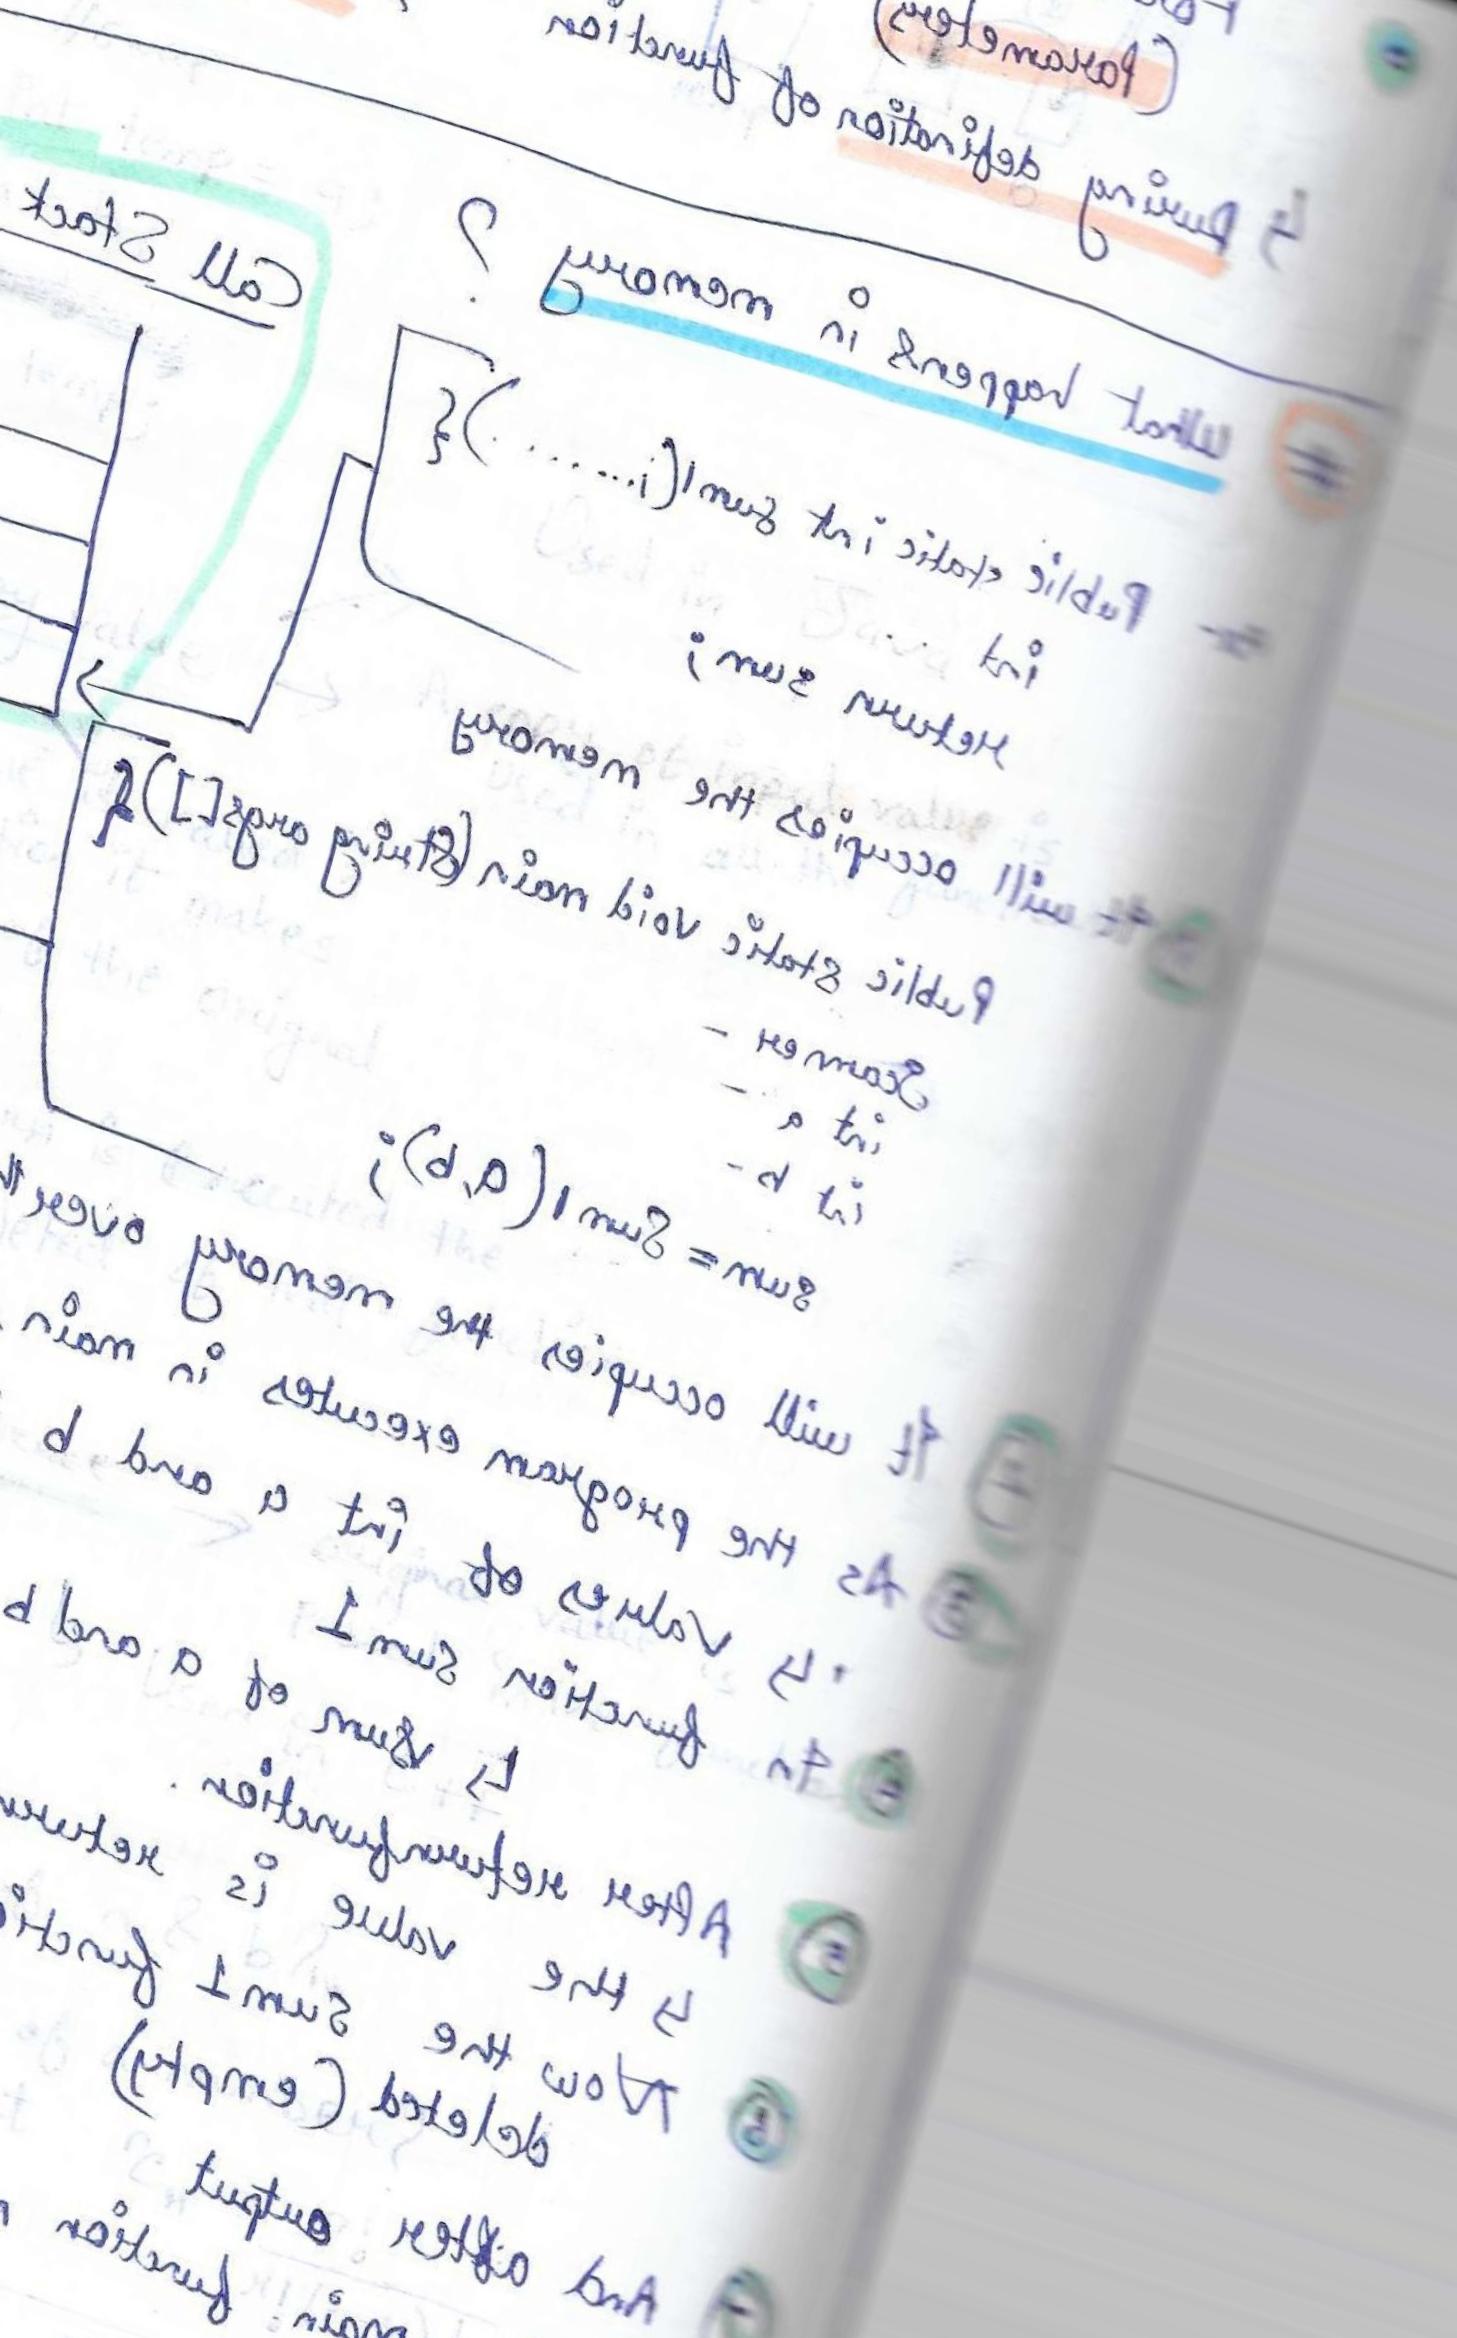 (Parameters)
↳ During defination of function
# What happens in memory ?
Call Stack
Ex- Public static int sum1(i......){
int ...
return sum;
It will occupies the memory
Public static void main(String args[]){
Scanner -
int a -
int b -
sum = Sum1(a,b);
It will occupies the memory over
③ As the program executes in main
↳ Values of int a and b
④ In function Sum 1
↳ Sum of a and b
⑤ After return function.
↳ the value is return
⑥ Now the Sum 1 function
deleted (empty)
⑦ And after output
main function